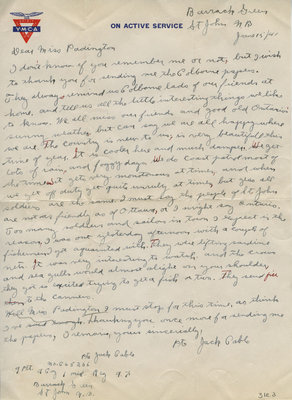 YMCA
ON ACTIVE SERVICE
Barrack Green
St John N.B
June 15/41
Dear Miss Padington
I don't know if you remember me or not, but I wish
to thank you for sending me the Colborne papers.
They always remind us Colborne lads of our friends at
home, and tell us all the little interesting things we like
to know. We all miss our friends and good old Ontario's
sunny weather but can say we are all happy where
we are. The country is new to me, is very beautiful this
time of year. It is cooler here and much damper. We get
lots of rain, and foggy days. We do coast patrol most of
the time, it gets very monotonous at times, and when
we get off duty get quite unruly at times, but I guess all
soldiers are the same. I must say the people of St John
are not as friendly as of Ottawa, or I might say Ontario.
Too many soldiers and sailors in town I suspect is the
reason. I was out yesterday afternoon with a couple of
fishermen I got acquainted with. They were lifting sardine
nets. It was very interesting to watch, and the
and sea gulls would almost alight on your shoulder,
they got so excited trying to get a fish or two. They send
them to the canners.
Well Miss Padington I must stop for this time, as think
I've said enough. Thanking you once more for sending me
the papers, I remain, yours sincerely,
Pte Jack Cable
Pte Jack Cable
No.
St John N.B.